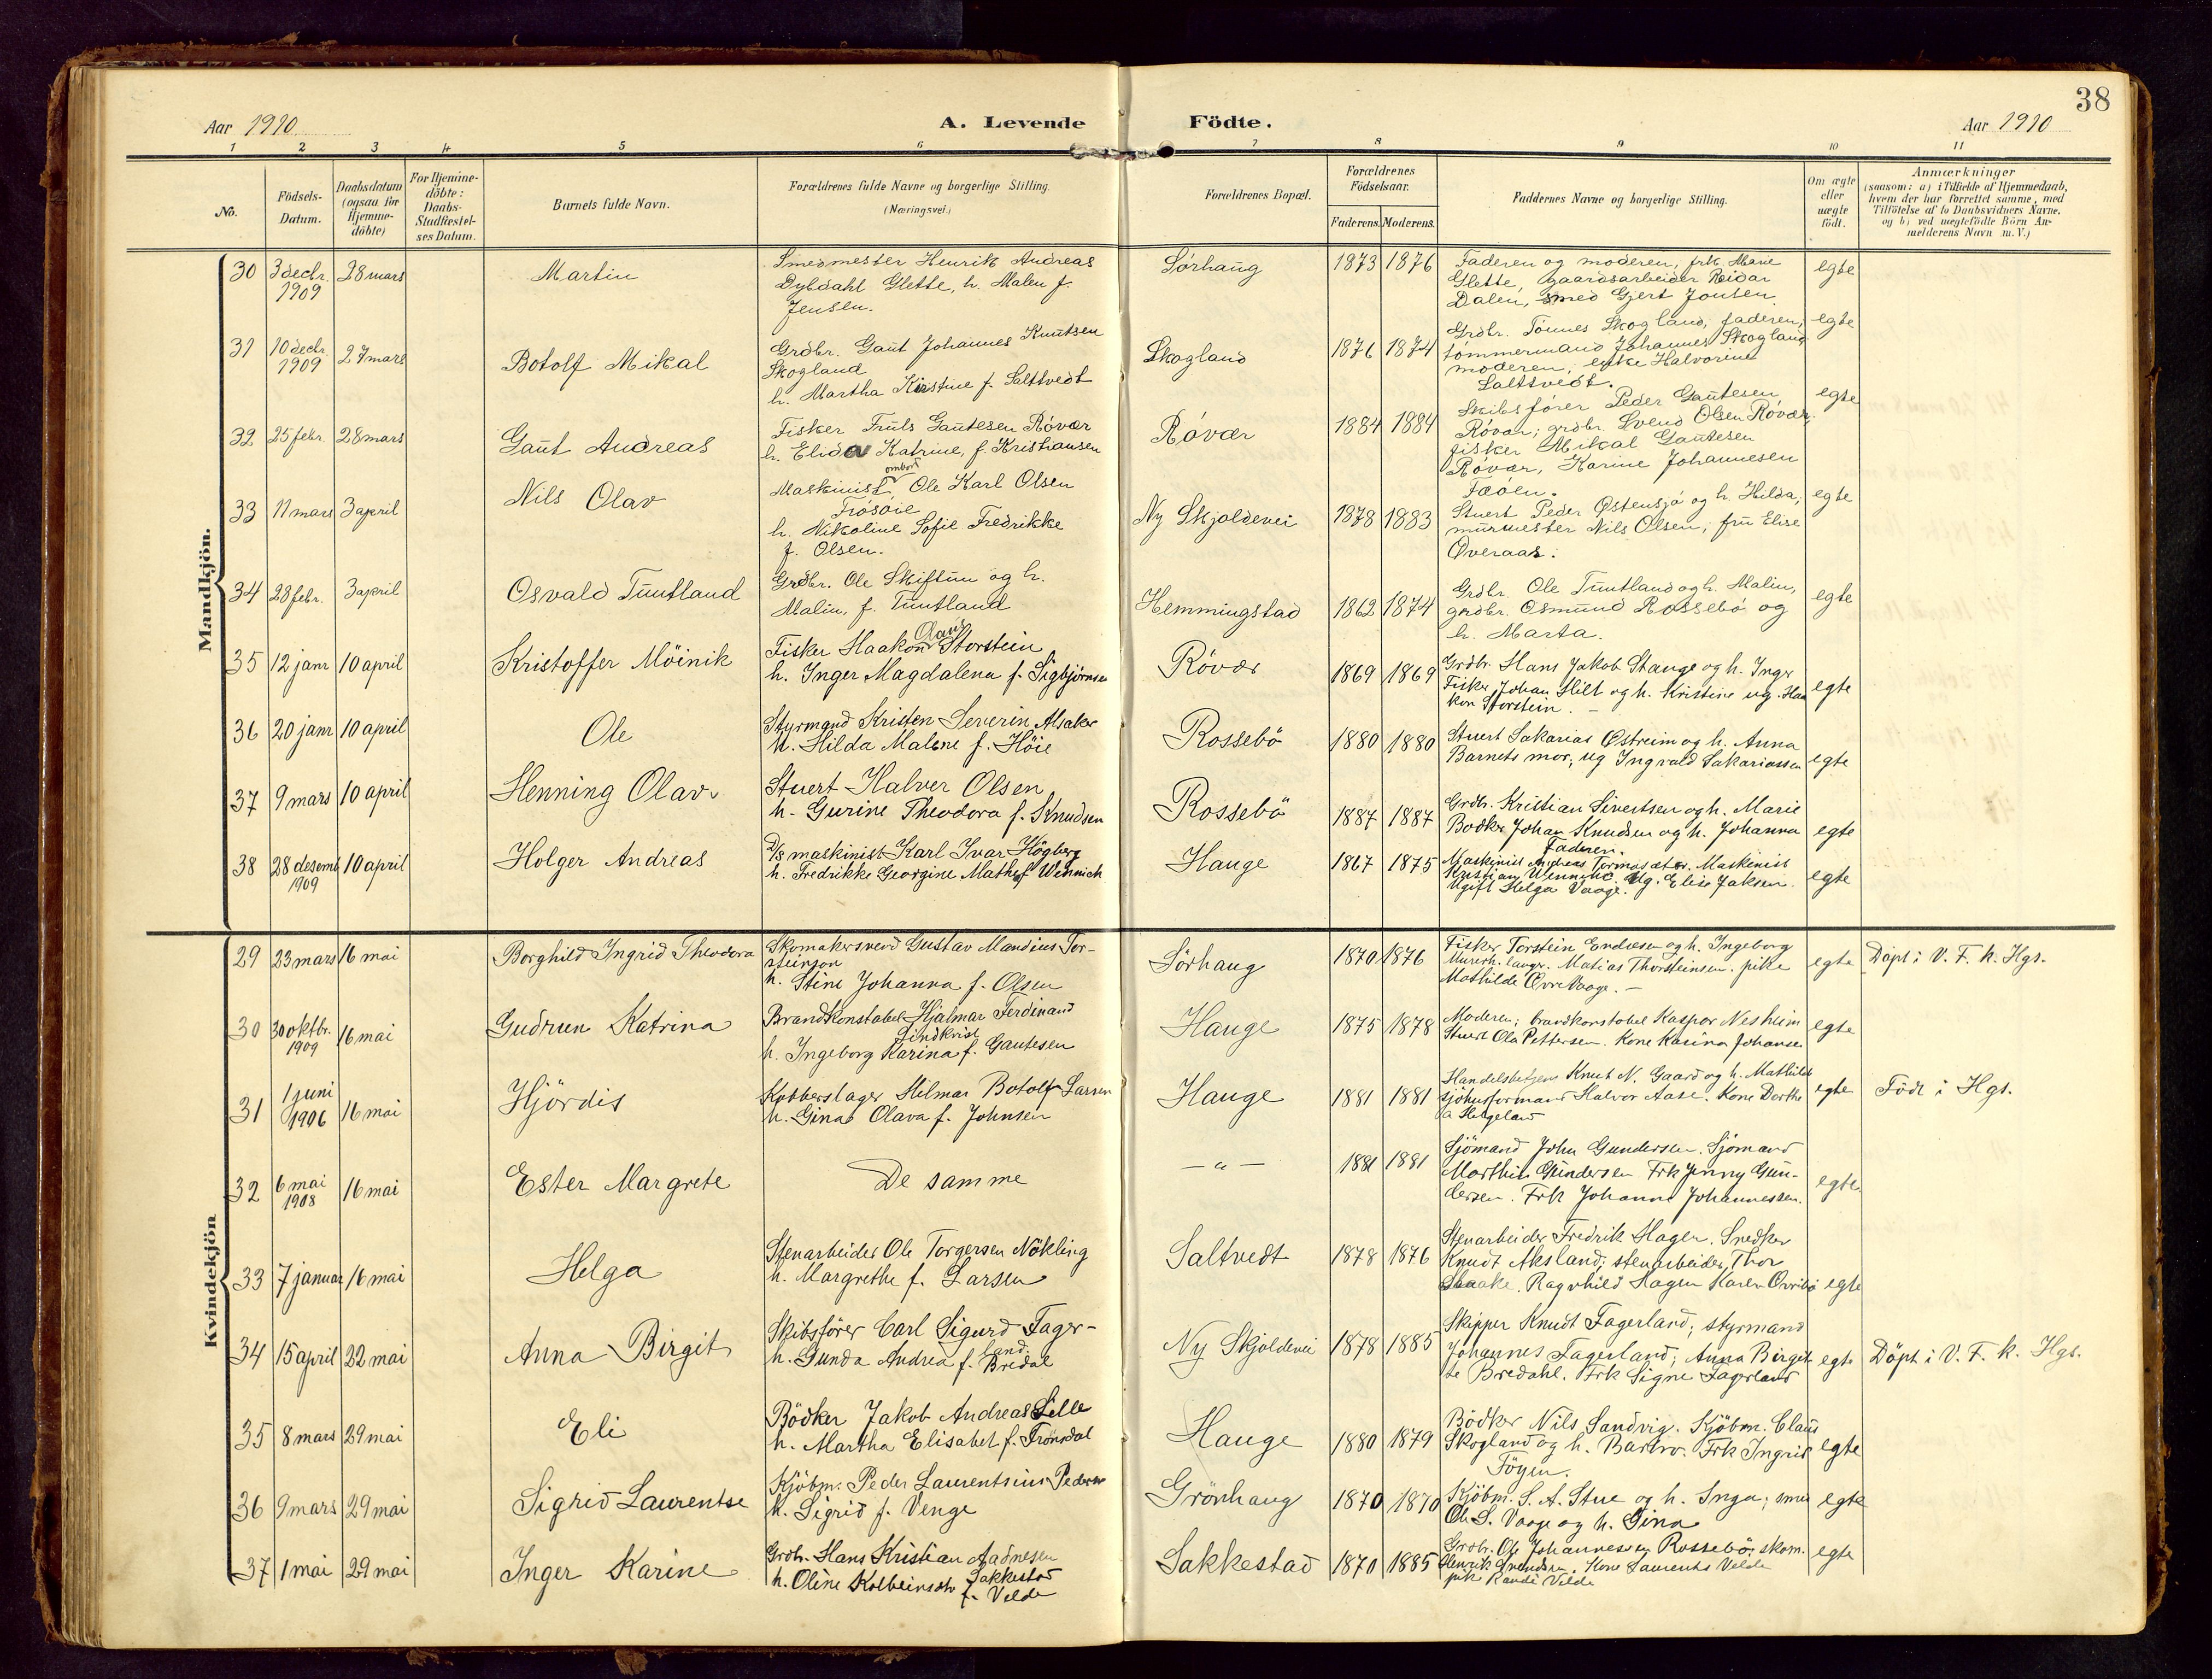 38
Aar 1910
A. Levende Födte.
Aar 1910
1 2 3 4 5 6 7 8 9 10 11
No.
Födsels-
Datum.
Daabsdatum
(ogsaa for
Hjemme-
döbte)
For Hjemme-
döbte:
Daabs-
Stadfæstel-
ses Datum.
Barnets fulde Navn.
Forældrenes fulde Navne og borgerlige Stilling.
(Næringsvei.)
Forældrenes Bopæl.
Forældrenes
Födselsaar.
Faderens. Moderens.
Faddernes Navne og borgerlige Stilling.
Om ægte
eller
uægte
födt.
Anmærkninger
(saasom: a) i Tilfælde af Hjemmedaab,
hvem der har forrettet samme, med
Tilföielse af to Daabsvidners Navne,
og b) ved uægtefödte Börn An-
melderens Navn m.V.)
Mandkjön.
30 3 decbr. 1909 28 mars Martin
Smedmester Henrik Andreas
Dybdahl Glette, h. Malen f.
Jensen.
Sørhaug 1873 1876
Faderen og moderen, frk. Marie
Glette, gaardsarbeider Reidar
Dalen, smed Gjert Jonsen.
egte
31 10 decbr. 1909 27 mars Botolf Mikal
Grdbr. Gaut Johannes Knutsen
Skogland
h. Martha Kirstine f. Saltvedt
Skogland 1876 1874
Grdbr. Tønnes Skogland, faderen,
tømmermand Johannes Skogland
moderen, enke Halvorine
Saltvedt.
egte
32 25 febr. 28 mars Gaut Andreas
Fisker Truls Gautesen Røvær
h. Elida Katrine, f. Kristiansen
Røvær 1884 1884
Skibsfører Peder Gautesen
Røvær; grdbr. Svend Olsen Røvær,
fisker Mikal Gautesen
Røvær, Karine Johannesen
Fæøen.
egte
33 11 mars 3 april Nils Olav
ombord
Maskinist Ole Karl Olsen
Frøsøie
h. Nikoline Sofie Fredrikke
f. Olsen.
Ny Skjoldevei 1878 1883
Stuert Peder Østensjø og h. Hilda,
murmester Nils Olsen; fru Elise
Overaas.
egte
34 28 febr. 3 april Osvald Tuntland
Grdbr. Ole Skiftun og h.
Malin, f. Tuntland
Hemmingstad 1862 1874
Grdbr. Ole Tuntland og h. Malin,
grdbr. Osmund Rossebø og
h. Marta.
egte
35 12 janr 10 april Kristoffer Möinik
Olaus
Fisker Haakon Storstein
h. Inger Magdalena f. Sigbjørnsen
Røvær 1869 1869
Grdbr. Hans Jakob Stange og h. Inger
Fisker Johan Hilt og h. Kristine ug. Haa
kon Storstein. -
egte
36 20 janr 10 april Ole
Styrmand Kristen Severin Alsaker
h. Hilda Malene f. Höie
Rossebö 1880 1880
Stuert Sakarias Østreim og h. Anna
Barnets mor, ug Ingvald Sakariassen
egte
37 9 mars 10 april Henning Olav
Stuert Halver Olsen
h. Gurine Theodora f. Knudsen
Rossebö 1887 1887
Grdbr. Kristian Sivertsen og h. Marie
Bødker Johan Knudsen og h. Johanna
egte
38 28 desemb 1909 10 april Holger Andreas
D/s maskinist Karl Ivar Högberg
h. Fredrikke Georgine Mathe f Wennich
Hauge 1867 1875
Faderen.
Maskinist Andreas Tormodsæter. Maskinist
Kristian Wennich. Ug. Elise Jaksen.
Ugift Helga Vaage.
egte
Kvindekjön
29 23 mars 16 mai Borghild Ingrid Theodora
Skomakersvend Gustav Mandius Tor-
steinson
h. Stine Johanna f. Olsen
Sörhaug 1870 1876
Fisker Torstein Endresen og h. Ingeborg
Murerh.langer. Matias Thorsteinsen. pike
Mathilde Øvrevaage. -
egte Döpt i V. F. k. Hgs.
30 30 oktbr. 1909 16 mai Gudrun Katrina
Brandkonstabel Hjalmar Ferdinand
Lindkvist
h. Ingeborg Karina f. Gautesen
Hauge 1875 1878
Moderen; brandkonstabel Kaspar Nesheim
Stuert Ola Pettersen. Kone Karina Johanse
egte
31 1 juni 1906 16 mai Hjördis
Kobberslager Hilmar Botolf Larsen
h. Gina Olava f. Johnsen
Hauge 1881 1881
Handelsbetjent Knut N. Gaard og h. Mathilde
sjöhusformand Halvor Aase. Kone Dorthe
a Helgeland
egte Födt i Hgs.
32 6 mai 1908 16 mai Ester Margrete
De samme
— " — 1881 1881
Sjömand John Gundersen. Sjömand
Morthin Gundersen Frk Jenny Gun-
dersen. Frk Johanne Johannessen.
egte
33 7 januar 16 mai Helga
Stenarbeider Ole Torgersen Nökling
h. Margrethe f. Larsen
Saltvedt 1878 1876
Stenarbeider Fredrik Hagen. Snedker
Knudt Aksland; stenarbeider Thor
Haake. Ragnhild Hagen Karen Ovrebö
egte
34 15 april 22 mai Anna Birgit
Skibsförer Carl Sigurd Fager-
land.
h. Gunda Andrea f. Bredal
Ny Skjoldevei 1878 1885
Skipper Knudt Fagerland; styrmand
Johannes Fagerland; Anna Birgit
te Bredahl. Frk Signe Fagerland
egte Döpt i V. F. k. Hgs.
35 8 mars 29 mai Eli
Bödker Jakob Andreas Lille
h. Martha Elisabet f. Tronsdal
Hauge 1880 1879
Bödker Nils Sandvig. Kjöbm. Claus
Skogland og h. Barbro. Frk Ingrid
Föyen.
egte
36 9 mars 29 mai Sigrid Laurentse
Kjöbm. Peder Laurentsius Pedersen
h. Sigrid f. Venge
Grönhaug 1870 1870
Kjöbm. S. A. Stue og h. Inga; smed
Ole S. Vaage og h. Gina
egte
37 1 mai 29 mai Inger Karine
Grdbr. Hans Kristian Aadnesen
Sakkestad
h. Oline Kolbeinsdtr f. Velde
Sakkestad 1870 1885
Grdbr. Ole Johannessen Rossebö, skom.
Henrik Svendsen. Kone Laurentse Velde
pike Randi Velde
egte